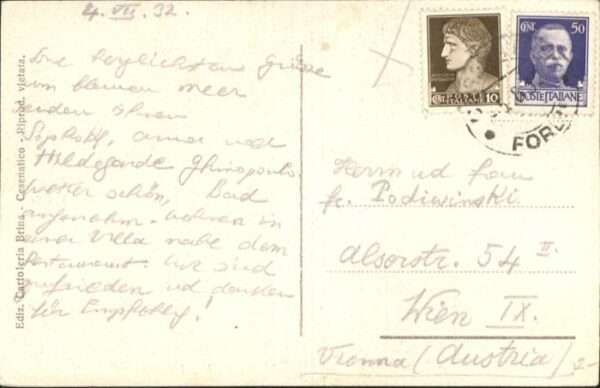 4. VII. 32.
Die herzlichsten Grüße
vom blauen Meer
senden Ihnen
Sophokl, Anna und
Hildegarde Ghinopoulo.
Wetter schön, Bad
angenehm. Wohnen in
einer Villa nahe dem
Restaurant. Wir sind
zufrieden ud danken
für Empfehlg!
Ediz. Cartoleria Brina - Cesenatico - Riprod. vietata.
CENT. POSTE ITALIANE 10
CENT. 50
POSTE ITALIANE
FORLI
Herrn und Frau
Podiwinski
Alserstr. 54 II.
Wien IX.
Vienna (Austria)